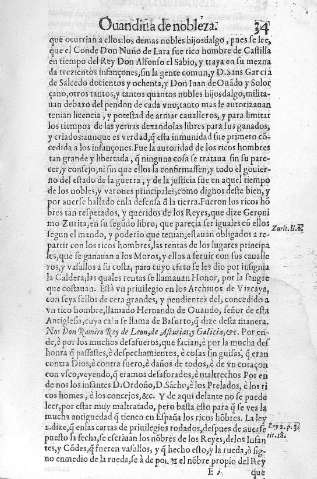 Quandiũa de nobleza. 34
que ocurrian a ellos: los demas nobles hijosdalgo, pues se lee,
que el Conde Don Nuño de Lara fue rico hombre de Castilla
en tiempo del Rey Don Alfonso el Sabio, y traya en su mezna
da trezientos infançones, sin la gente comun, y D. Sans Garcia
de Salcedo dozientos y ochenta, y Don Iuan de Ouãdo y Solor
çano, otros tantos, y tantos quantos nobles hijosdalgo, milita-
uan debaxo del pendon de cada vno, tanto mas le autorizauan
tenian licencia, y potestad de armar caualleros, y para limitar
los tiempos de las yeruas dexandolas libres para sus ganados,
y criados: aunque es verdad, q̃ esta inmunidad fue primero cõ-
cedida a los infançones. Fue la autoridad de los ricos hombres
tan grande y libertada, q̃ ninguna cosa se trataua sin su pare-
cer, y consejo, ni sin que ellos la confirmassen, y todo el gouier-
no del estado de la guerra, y de la justicia fue en aquel tiempo
de los nobles, y varones principales, como dignos deste bien, y
por auerse hallado en la defensa d̃ la tierra. Fueron los ricos hõ
bres tan respetados, y queridos de los Reyes, que dize Geroni
mo Zurita, en su segundo libro, que parecia ser iguales cõ ellos
segun el mando, y poderio que tenian, estauan obligados a re-
partir con los ricos hombres, las rentas de los lugares principa
les, que se ganauan a los Moros, y ellos a seruir con sus caualle
ros, y vassallos a su costa, para cuyo efeto se les dio por insignia
la Caldera, las quales rentas se llamauan Honor, por la sangre
que costauan. Està vn priuilegio en los Archiuos de Vizcaya,
con seys sellos de cera grandes, y pendientes del, concedido a
vn rico hombre, llamado Hernando de Ouando, señor de esta
Antiglesia, cuya casa se llama de Basarto, q̃ dize desta manera.
Nos Don Ramiro Rey de Leon, de Asturias, Galicia, &c. Por en-
de, è por los muchos desafueros, que facian, è por la mucha des
honra q̃ passastes, è despechamientos, è cosas sin guisas, q̃ eran
contra Dios, è contra fuero, è daños de todos, è de vn coraçon
con vsco, veyendo, q̃ eramos desaforados, è maltrechos Por en
de nos los infantes D. Ordoño, D. Sãcho, è los Prelados, è los ri
cos homes, è los concejos, &c. Y de aqui delante no se puede
leer, por estar muy maltratado, pero basta esto para q̃ se vea la
mucha antiguedad q̃ tienen en España los ricos hõbres. La ley
2. dize, q̃ en las cartas de priuilegios rodados, despues de auerse
puesto la fecha, se escriuan los nõbres de los Reyes, de los Infan
tes, y Cõdes, q̃ fueren vassallos, y q̃ hecho esto, y la rueda, ò sig-
no en medio de la rueda, se à de poner el nõbre propio del Rey
que